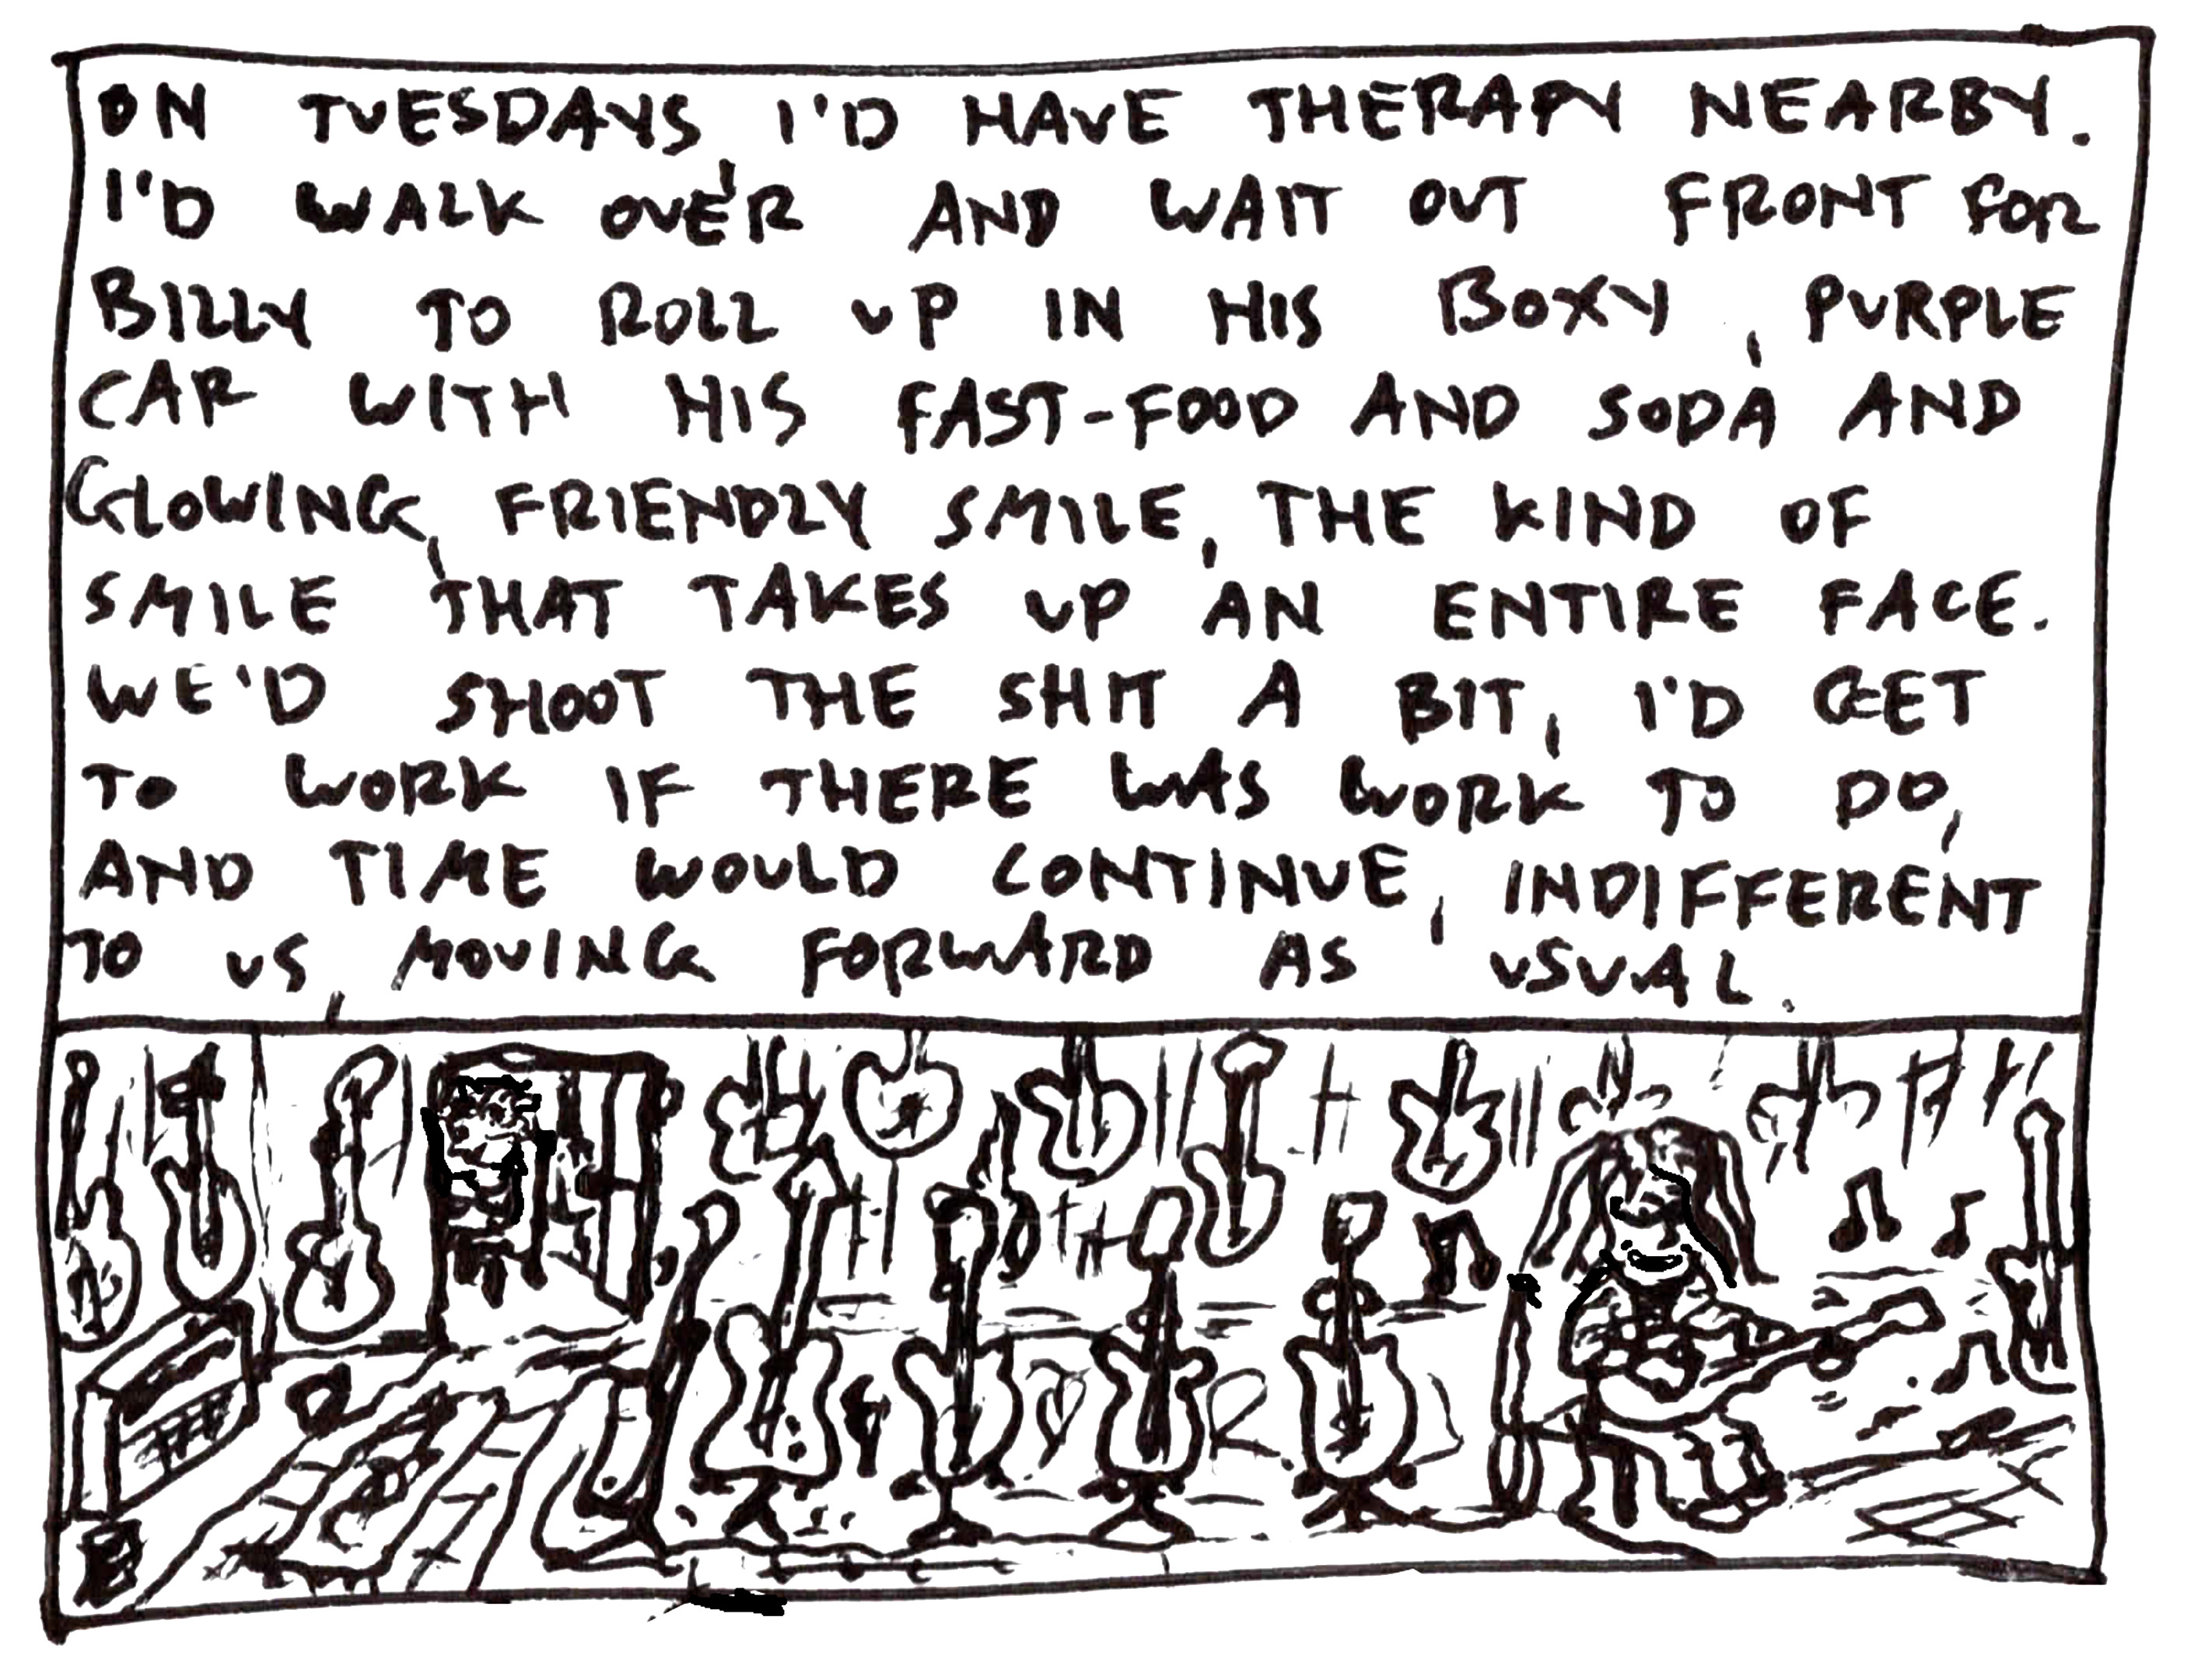 ON TUESDAYS, I'D HAVE THERAPY NEARBY.
I'D WALK OVER AND WAIT OUT FRONT FOR
BILLY TO ROLL UP IN HIS BOXY, PURPLE
CAR WITH HIS FAST-FOOD AND SODA AND
GLOWING, FRIENDLY SMILE, THE KIND OF
SMILE THAT TAKES UP AN ENTIRE FACE.
WE'D SHOOT THE SHIT A BIT, I'D GET
TO WORK IF THERE WAS WORK TO DO,
AND TIME WOULD CONTINUE, INDIFFERENT
TO US, MOVING FORWARD AS USUAL.